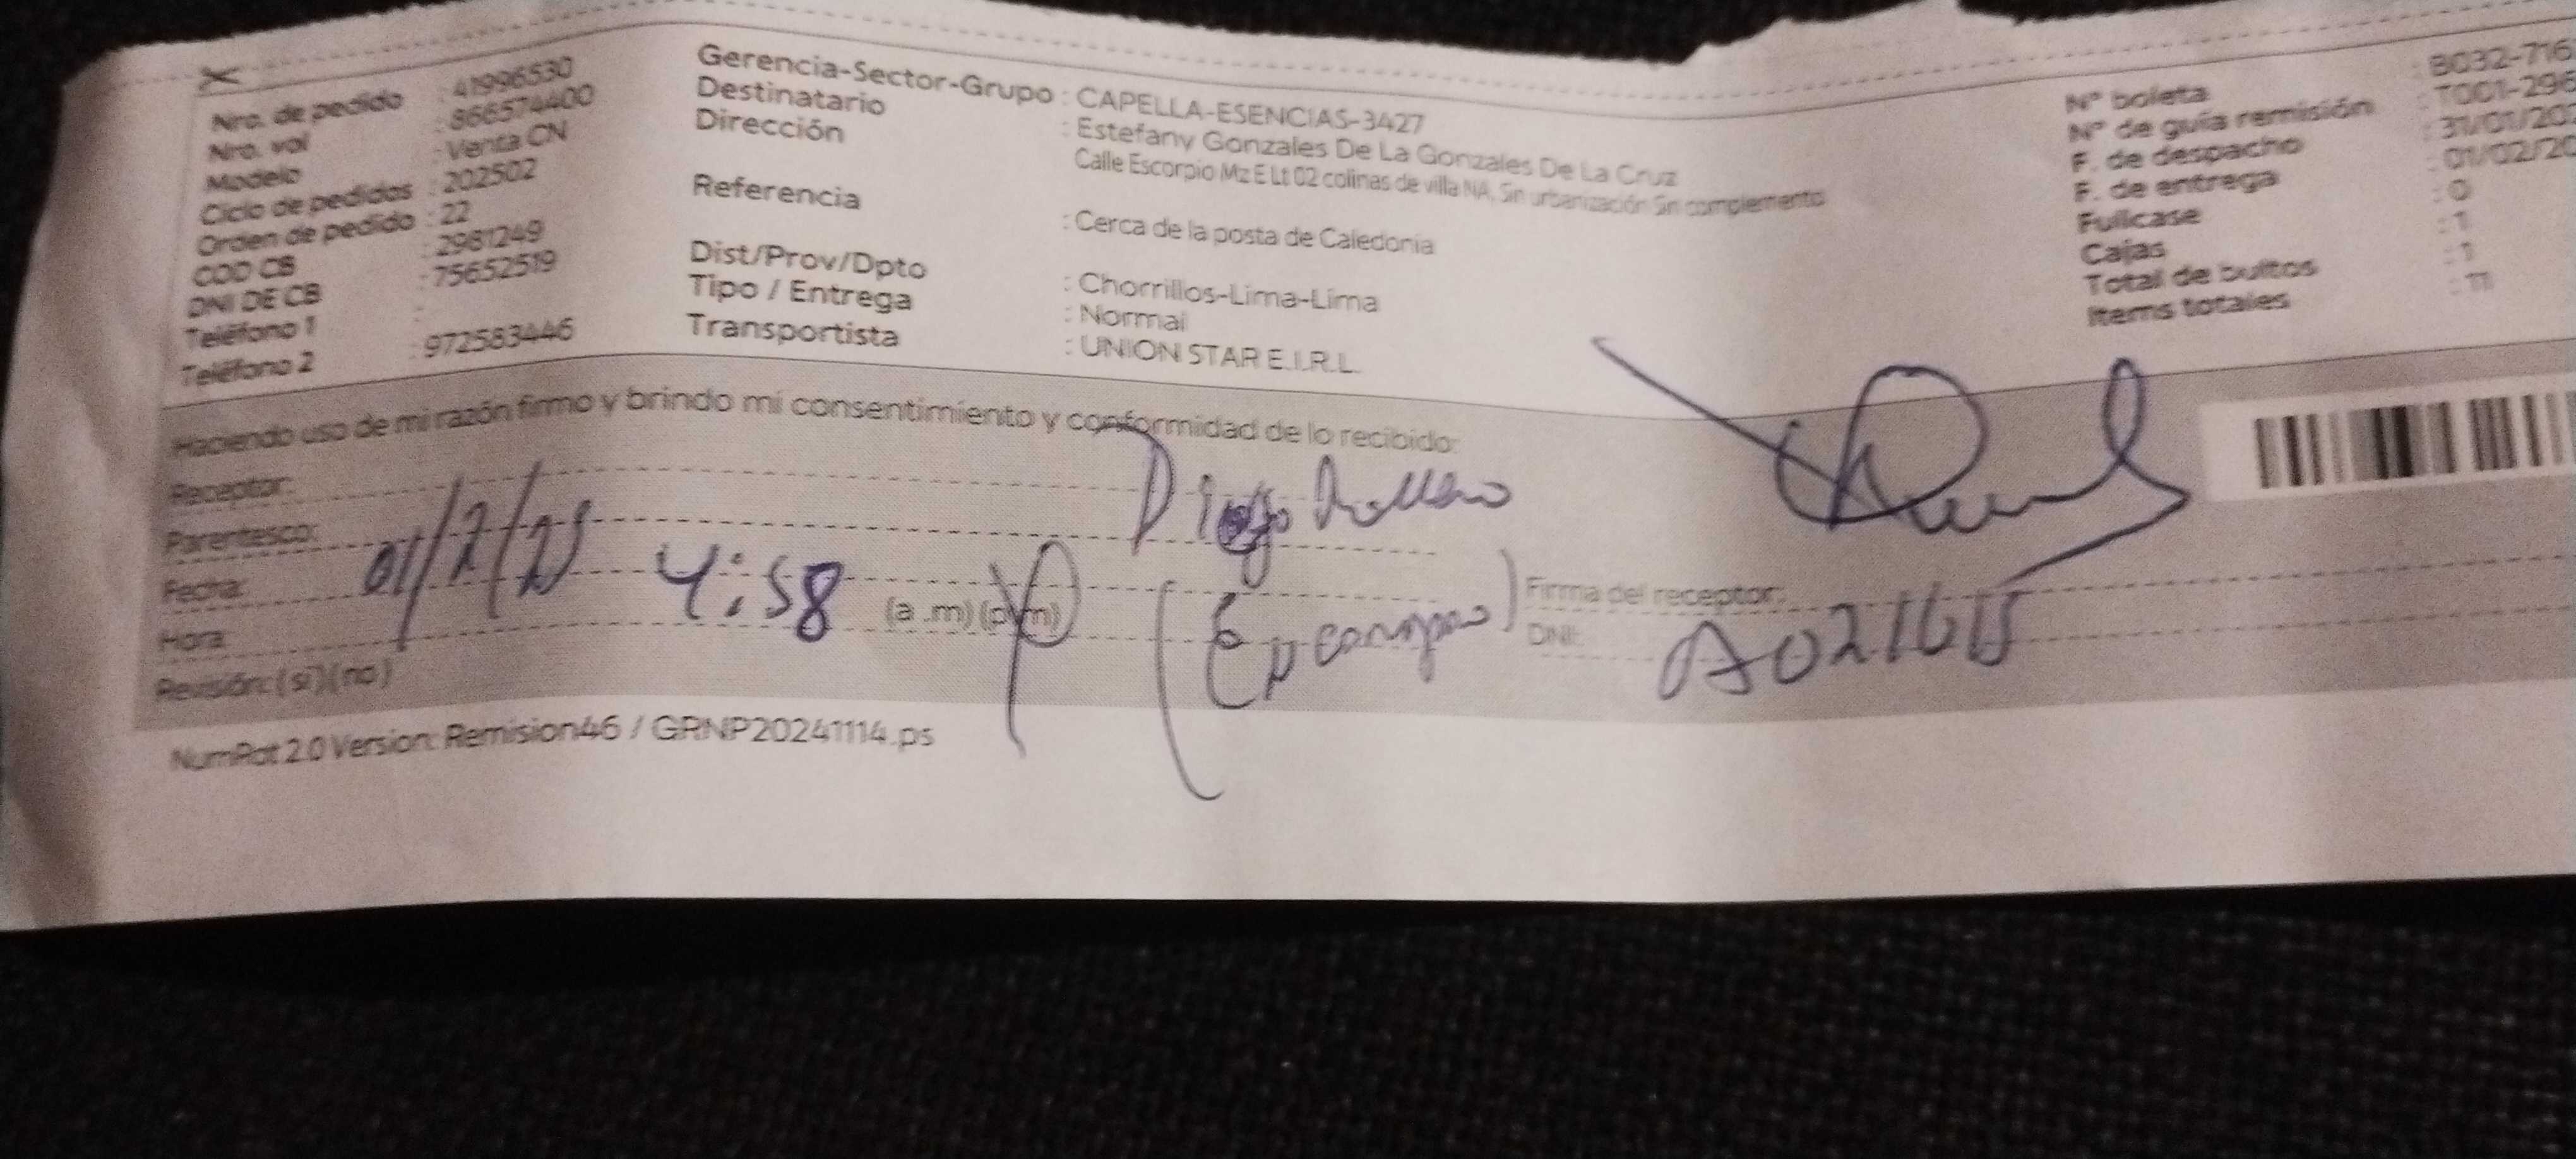 Nro. de pedido : 41996530
Nro. vol : 866574400
Modelo : Venta CN
Ciclo de pedidos : 202502
Orden de pedido : 22
COD CB : 2981249
DNI DE CB : 75652519
Teléfono 1 :
Teléfono 2 : 972583446
Gerencia-Sector-Grupo : CAPELLA-ESENCIAS-3427
Destinatario : Estefany Gonzales De La Gonzales De La Cruz
Dirección Calle Escorpio Mz E Lt 02 colinas de villa NA, Sin urbanización Sin complemento
Referencia : Cerca de la posta de Caledonia
Dist/Prov/Dpto : Chorrillos-Lima-Lima
Tipo / Entrega : Normal
Transportista : UNION STAR E.I.R.L.
N° boleta : B032-716
N° de guía remisión : T001-296
F. de despacho : 31/01/20
F. de entrega : 01/02/20
Fullcase : 0
Cajas : 1
Total de bultos : 1
Items totales : 11
Haciendo uso de mi razón firmo y brindo mi consentimiento y conformidad de lo recibido:
Receptor:
Parentesco: Diego
Fecha: 01/2/25
Hora: 4:58 (a .m) (p.m)
Revisión: (si) (no)
Firma del receptor:
DNI:
NumRot 2.0 Version: Remision46 / GRNP20241114.ps